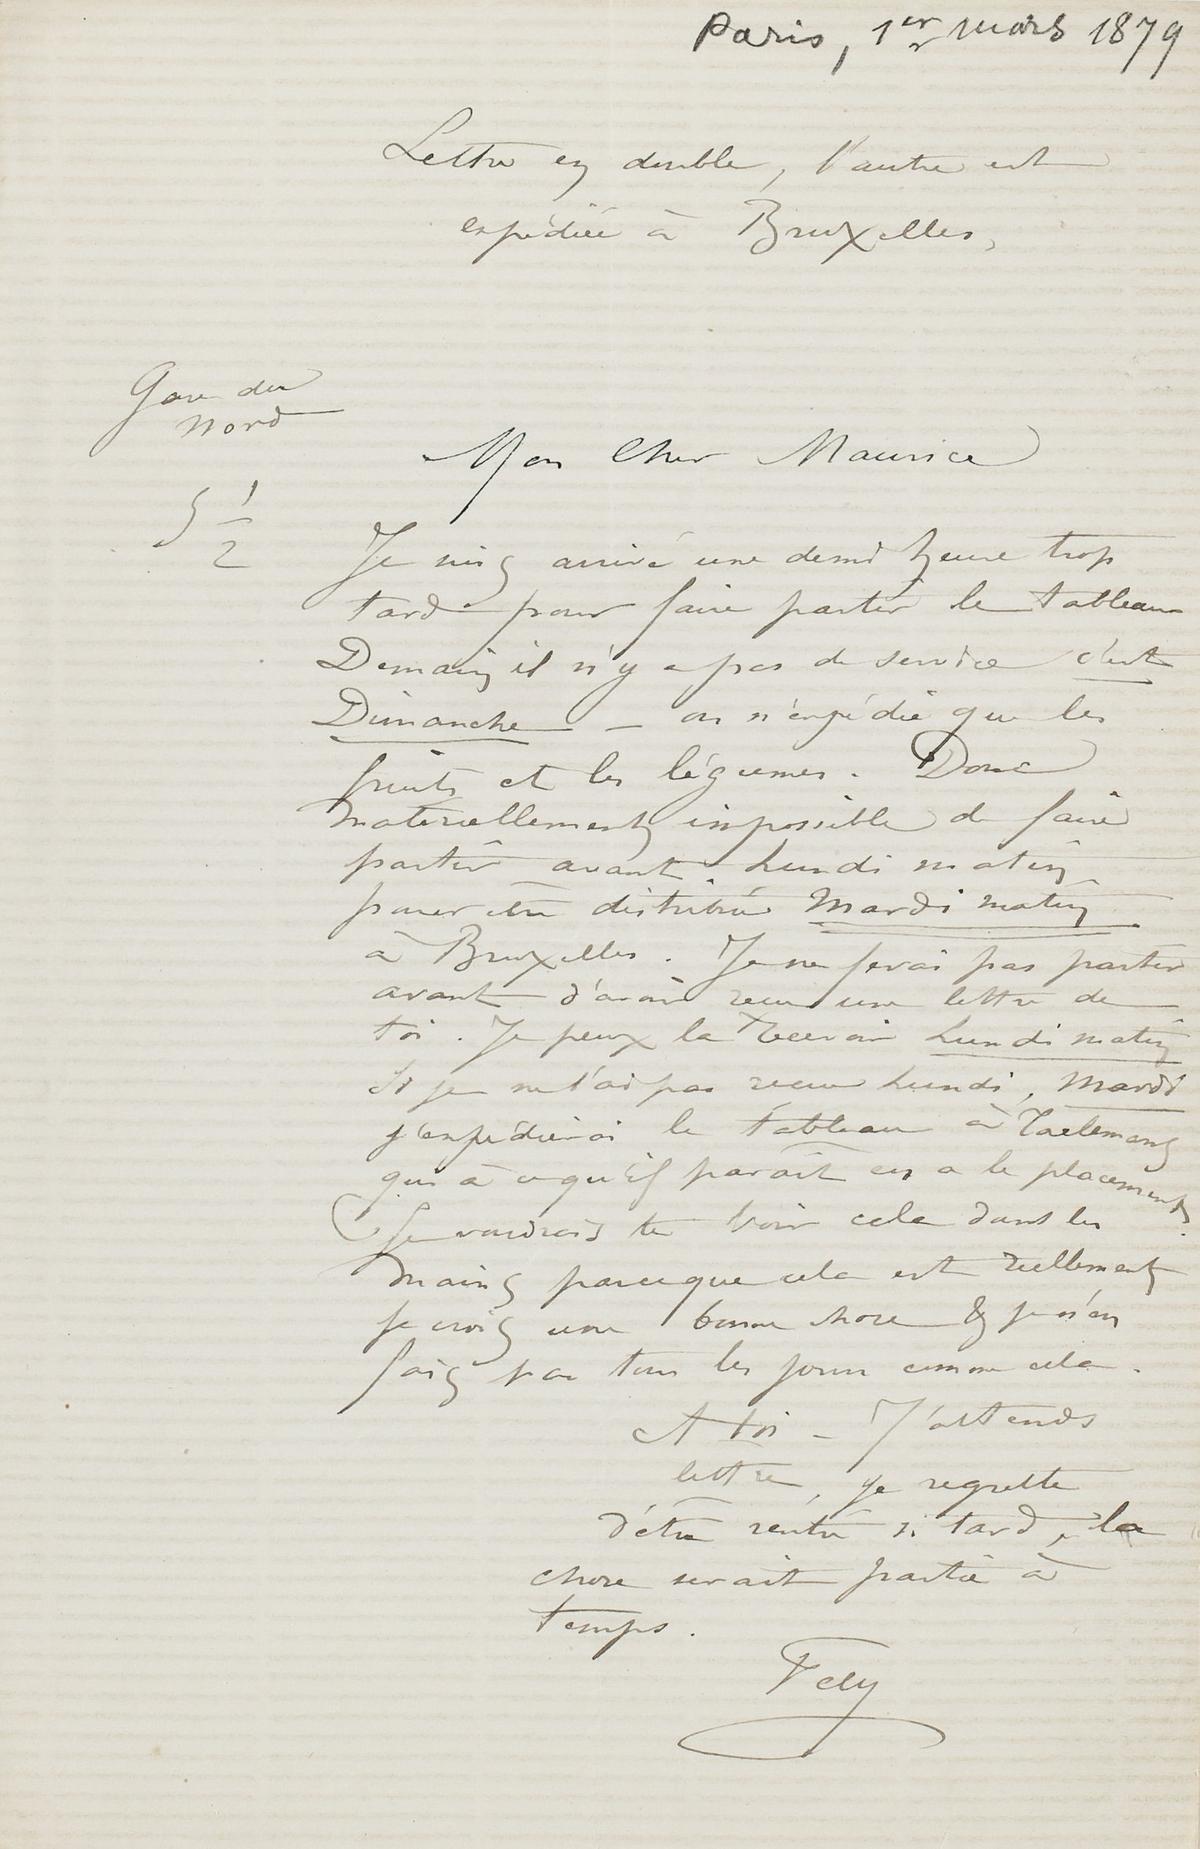 Paris, 1er mars 1879
Lettre en double, l'autre est
expédiée à Bruxelles,
Gare du
Nord
5 1/2
Mon Cher Maurice
Je suis arrivé une demi heure trop
tard pour faire partir le tableau
Demain il n'y a pas de service c'est
Dimanche — on n'expédie que les
fruits et les légumes. Donc
matériellement impossible de faire
partir avant Lundi matin
pour être distribué Mardi matin
à Bruxelles. Je ne ferai pas partir
avant d'avoir reçu une lettre de
toi. Je peux la recevoir Lundi matin
Si je ne l'ai pas reçue Lundi, Mardi
j'expédierai le tableau à Taelemans
qui à ce qu'il paraît en a le placement.
Je voudrais te voir cela dans les
mains parceque cela est réellement
je crois une bonne chose & je n'en
fais pas tous les jours comme cela.
A toi — J'attends
lettre, je regrette
d'être rentré si tard, la
chose serait partie à
temps.
Fély